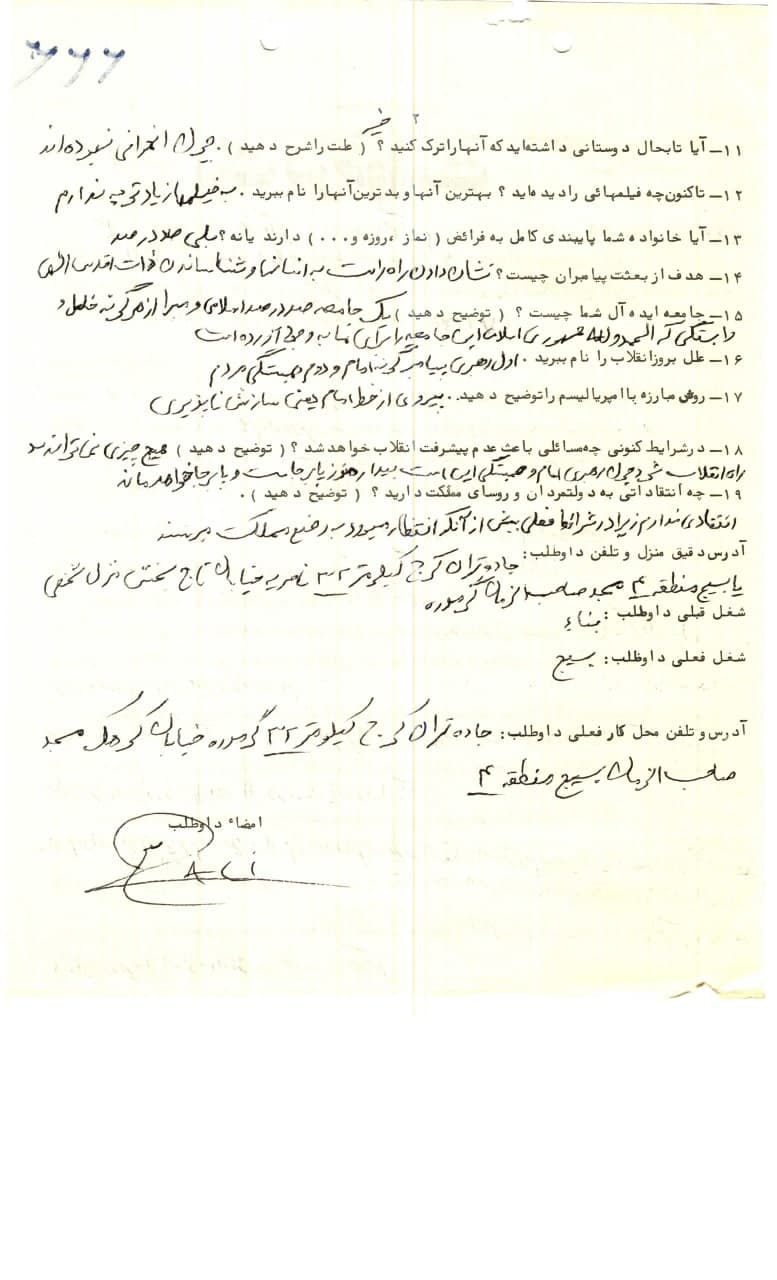 ۲
خیر
۱۱ــ آیا تابحال دوستانی داشته‌اید که آنها را ترک کنید ؟ ( علت را شرح دهید ) . چون انحرافی نبوده‌اند
۱۲ــ تاکنون چه فیلمهائی را دیده‌اید ؟ بهترین آنها و بدترین آنها را نام ببرید . به فیلمها زیاد توجه ندارم
۱۳ــ آیا خانواده شما پایبندی کامل به فرائض ( نماز ، روزه و . . . ) دارند یا نه ؟ بلی صد در صد
۱۴ــ هدف از بعثت پیامبران چیست ؟ نشان دادن راه راست به انسانها و شناساندن ذات اقدس الهی
۱۵ــ جامعه ایده آل شما چیست ؟ ( توضیح دهید ) یک جامعه صد در صد اسلامی و مبرا از هرگونه خلل و
وابستگی که الحمدولله جمهوری اسلامی این جامعه را برای ما به وجود آورده است
۱۶ــ علل بروز انقلاب را نام ببرید . اول رهبری پیامبرگونه امام و دوم همبستگی مردم
۱۷ــ روش مبارزه با امپریالیسم را توضیح دهید . پیروی از خط امام یعنی سازش ناپذیری
۱۸ــ در شرایط کنونی چه مسائلی باعث عدم پیشرفت انقلاب خواهد شد ؟ ( توضیح دهید ) هیچ چیزی نمی‌تواند سد
راه انقلاب شود چون رهبری امام و همبستگی این امت بیدار هنوز پابرجاست و پابرجا خواهد ماند
۱۹ــ چه انتقاداتی به دولتمردان و روسای مملکت دارید ؟ ( توضیح دهید ) .
انتقادی ندارم زیرا در شرائط فعلی بیش از آنکه انتظار میرود به وضع مملکت میرسند
آدرس دقیق منزل و تلفن داوطلب : جاده تهران کرج کیلومتر ۳۲ ناصریه خیابان تاج بخش منزل شخصی
یا بسیج منطقه ۴ مسجد صاحب الزمان گرمدره
شغل قبلی داوطلب : بناء
شغل فعلی داوطلب : بسیج
آدرس و تلفن محل کار فعلی داوطلب : جاده تهران کرج کیلومتر ۳۲ گرمدره خیابان کوهک مسجد
صاحب الزمان بسیج منطقه ۴
امضاء داوطلب